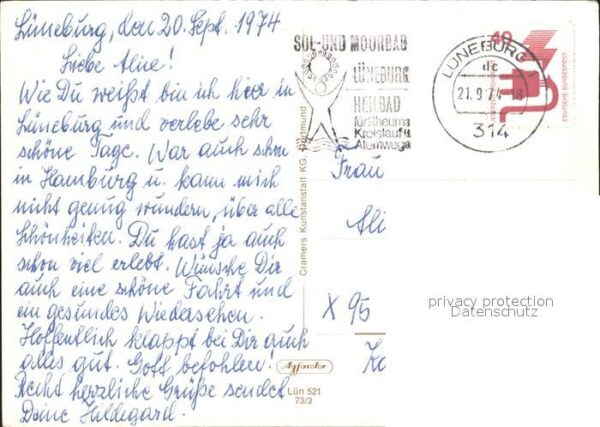 Lüneburg, den 20. Sept. 1974
Liebe Aline!
Wie Du weißt bin ich hier in
Lüneburg und verlebe sehr
schöne Tage. War auch schon
in Hamburg u. kann mich
nicht genug wundern, über alle
Schönheiten. Du hast ja auch
schon viel erlebt. Wünsche Dir
auch eine schöne Fahrt und
ein gesundes Wiedersehen.
Hoffentlich klappt bei Dir auch
alles gut. Gott befohlen!
Recht herzliche Grüße sendet
Deine Hildegard.
SOL- UND MOORBAD
LÜNEBURG
HEILBAD
für Rheuma
Kreislauf u.
Atemwege
LÜNEBURG
dc
21.9.74-18
314
40
DEUTSCHE BUNDESPOST
Cramers Kunstanstalt KG, Dortmund
Frau
Ali
X 95
Ka
privacy protection
Datenschutz
Lün 521
73/3